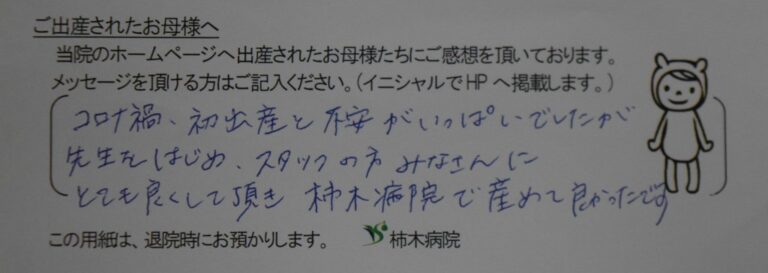 ご出産されたお母様へ
当院のホームページへ出産されたお母様たちにご感想を頂いております。
メッセージを頂ける方はご記入ください。(イニシャルでHPへ掲載します。)
コロナ禍、初出産と不安がいっぱいでしたが
先生をはじめ、スタッフの方みなさんに
とても良くして頂き柿木病院で産めて良かったです
この用紙は、退院時にお預かりします。 柿木病院